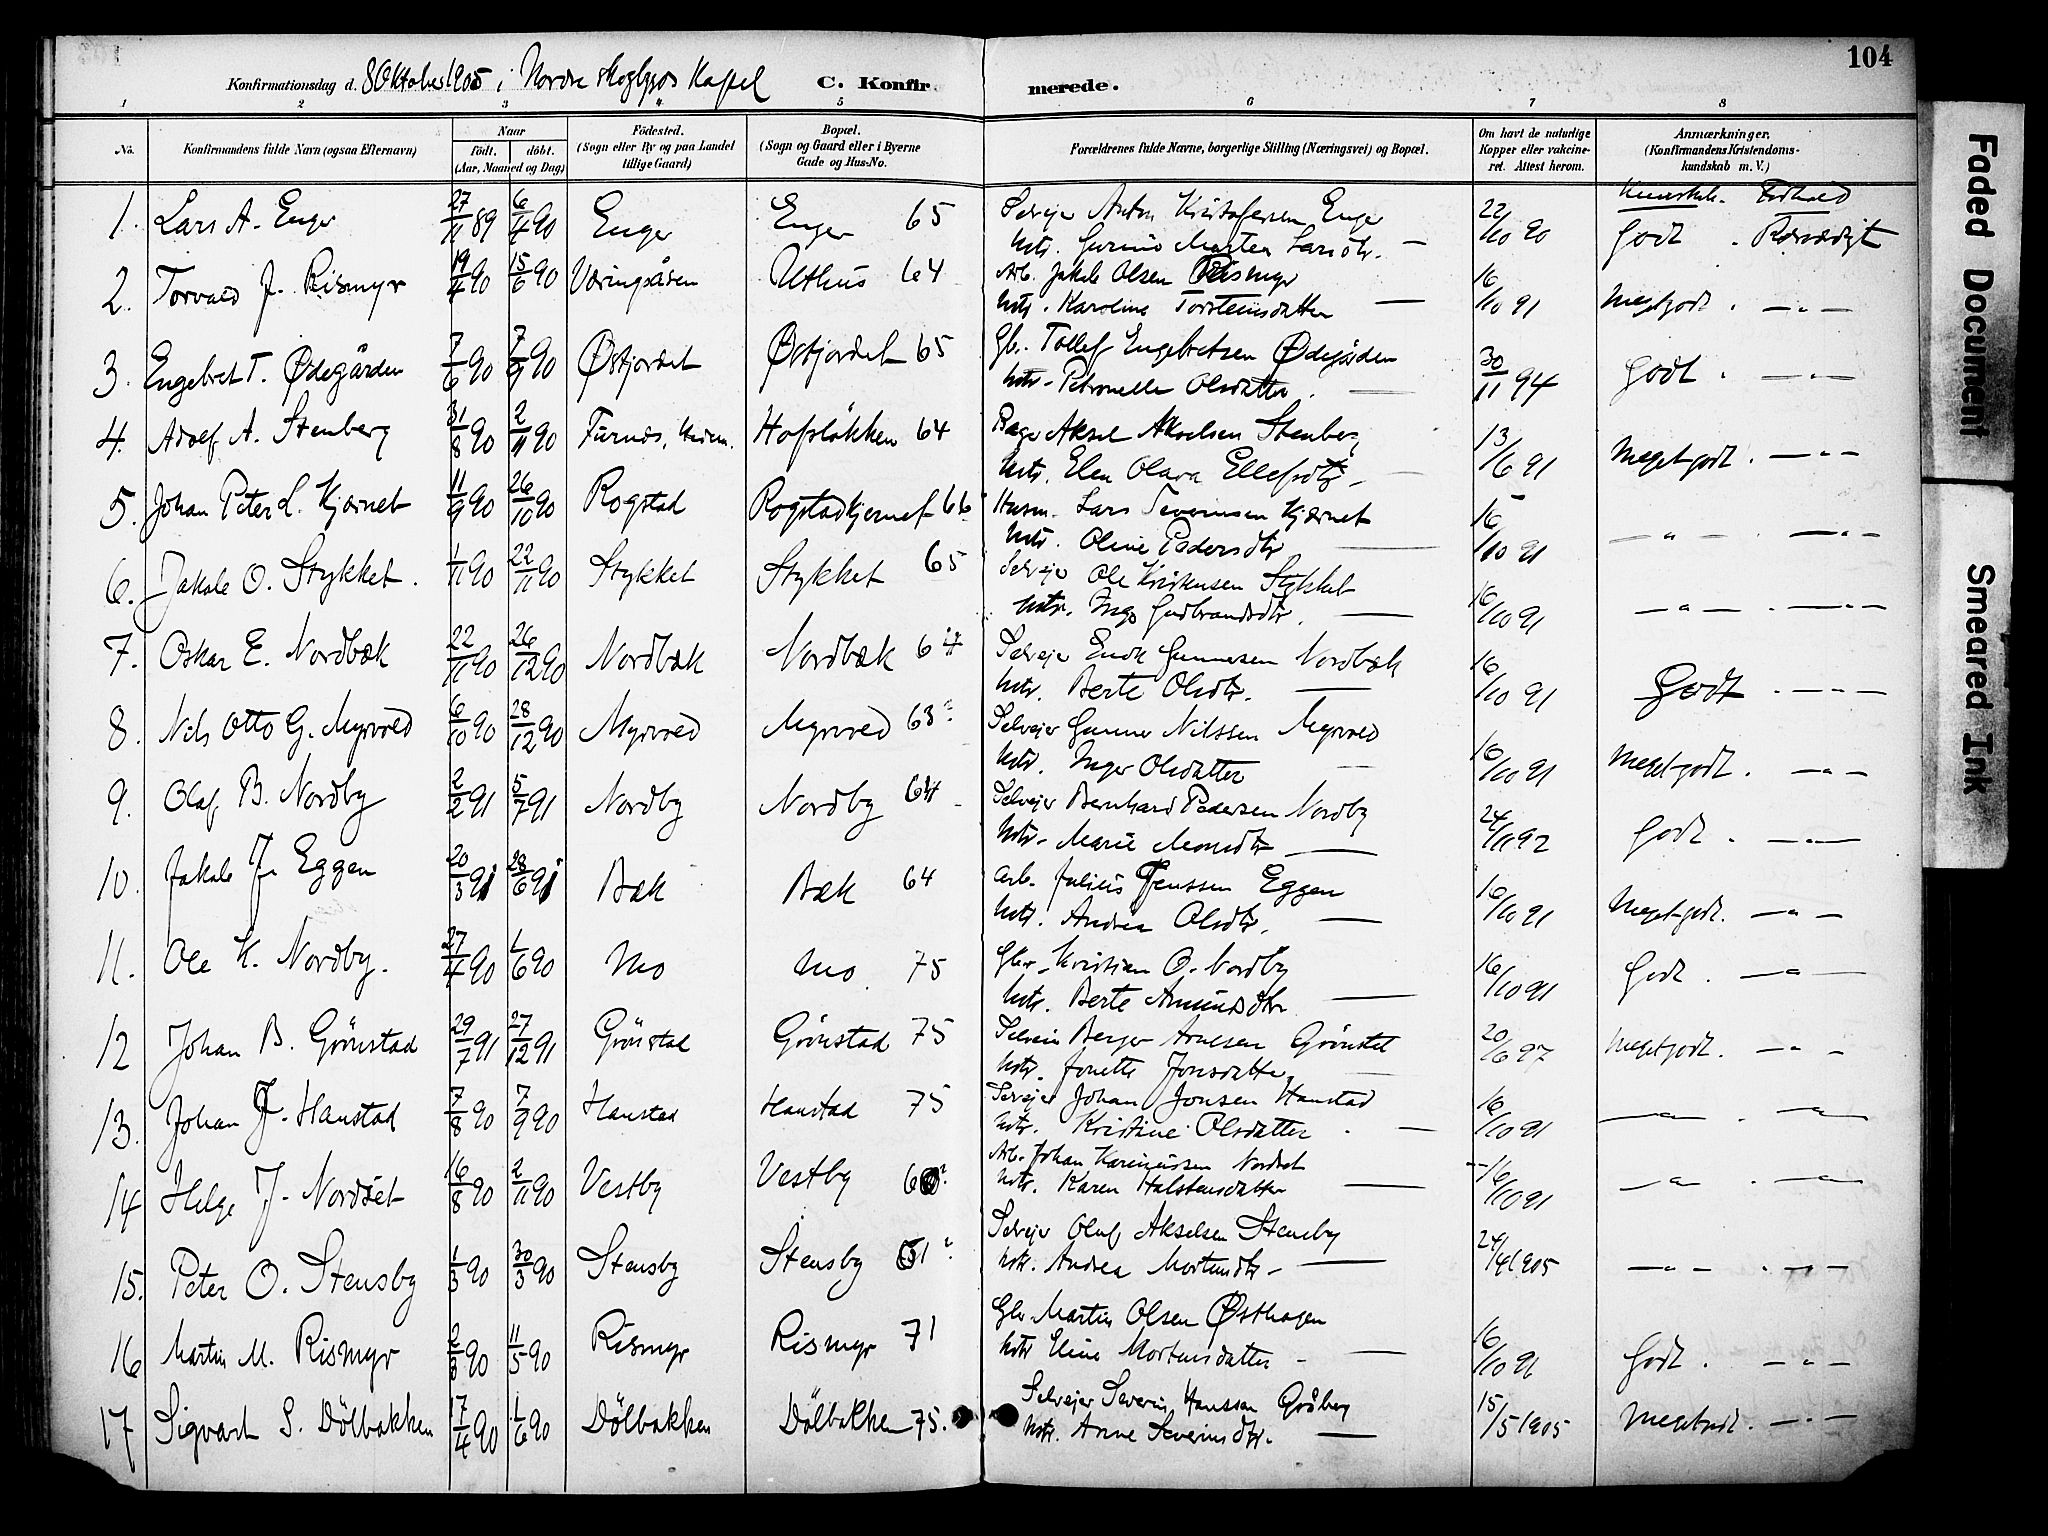 104
Konfirmationsdag d. 8 Oktober 1905 i Nordre skogbygds Kapel C. Konfirmerede.
1 2 3 4 5 6 7 8
No. Konfirmandens fulde Navn (ogsaa Efternavn) Naar født. døbt. (Aar, Maaned og Dag) Fødested. (Sogn eller By og paa Landet tillige Gaard) Bopæl. (Sogn og Gaard eller i Byerne Gade og Hus-No. Forældrenes fulde Navne, borgerlige Stilling (Næringsvei) og Bopæl. Om havt de naturlige Kopper eller vakcineret. Attest herom. Anmærkninger. (Konfirmandens Kristendomskundskab m. V.)
Kundskab. Forhold
1. Lars A. Enger 27/11 89 6/4 90 Enger Enger 65 Selveier Anton Kristofersen Enger 22/10 90 Godt. Rosværdigt
Hstr. Gurine Martea Larsdtr. —
2. Torvald J. Rismyr 19/4 90 15/6 90 Væringsåsen Uthus 64 Arb. Jakob Olsen Rismyr 16/10 91 Megetgodt. —"—
Hstr. Karoline Torsteinsdatter —
3. Engebret T. Ødegården 7/6 90 7/9 90 Østjordet Østjordet 65 Gb. Tollef Engebretsen Ødegården 30/11 94 Godt. —"—
Hstr. Petronelle Olsdatter. —
4. Adolf A. Stenberg 31/8 90 2/11 90 Furnes, Hedm. Hofsløkken 64 Bager Aksel Akselsen Stenberg 13/6 91 Megetgodt. —"—
Hstr. Elen Olava Ellefsdtr. —
5. Johan Peter L. Kjærnet 11/9 90 26/10 90 Rogstad Rogstadkjernet 66 Husm. Lars Severinsen Kjærnet 16/10 91 —"— . —"—
Hstr. Oline Pedersdtr —
6. Jakob O. Stykket. 1/11 90 22/11 90 Stykket Stykket 65 Selveier Ole Kristensen Stykket 16/10 91 —"— . —"—
Hstr. Inga Gudbrandsdtr. —
7. Oskar E. Nordbæk 22/11 90 26/12 90 Nordbæk Nordbæk 64 Selveier Enok Gunnersen Nordbæk 16/10 91 Godt . —"—
Hstr. Berte Olsdtr. —
8. Nils Otto G. Myrved 6/10 90 28/12 90 Myrvred Myrvred 63 Selveier Gunner Nilssen Myrvred 16/10 91 Megetgodt. —"—
Hstr. Inger Olsdatter —
9. Olaf B. Nordby 2/2 91 5/7 91 Nordby Nordby 64 Selveier Bernhard Pedersen Nordby 24/11 92 Godt . —"—
Hstr. Marie Monsdtr —
10. Jakob J. Eggen 20/3 91 28/6 91 Bæk Bæk 64 Arb. Julius Jenssen Eggen 16/10 91 Megetgodt. —"—
Hstr. Andrea Olsdtr. —
11. Ole K. Nordby. 27/4 90 1/6 90 Mo Mo 75 Gbr. Kristian O. Nordby 16/10 91 Godt . —"—
Hstr. Berte Amundsdtr —
12 Johan B. Grönstad 29/7 91 27/12 91 Grönstad Grönstad 75 Selveier Berger Arnesen Grönstad 20/6 97 Megetgodt. —"—
Hstr. Jonette Jonsdatter —
13. Johan J. Hanstad 7/8 90 7/9 90 Hanstad Hanstad 75 Selveier Johan Jonsen Hanstad 16/10 91 —"— . —"—
Hstr. Kristine Olsdatter . —
14 Helge J. Nordset 16/8 90 2/11 90 Vestby Vestby 60 Arb. Johan Kareniussen Nordset 16/10 91 —"— . —"—
Hstr. Karen Halstensdatter —
15. Peter O. Stensby 1/3 90 30/3 90 Stensby Stensby 61 Selveier Oluf Akselsen Stensby 24/4 1905 —"— . —"—
Hstr. Andrea Mortensdtr. —
16 Martin M. Rismyr 2/3 90 11/5 90 Rismyr Rismyr 71 Gbr Martin Olsen Østhagen 16/10 91 Godt . —"—
Hstr Eline Mortensdatter —
17 Sigvart S. Dölbakken 17/4 90 1/6 90 Dölbakken Dölbakken 75. Selveier Severin Hanssen Gråberg 15/5 1905 Megetgodt. —"—
Hstr. Anne Severinsdtr. —
Faded Document
Smeared Ink